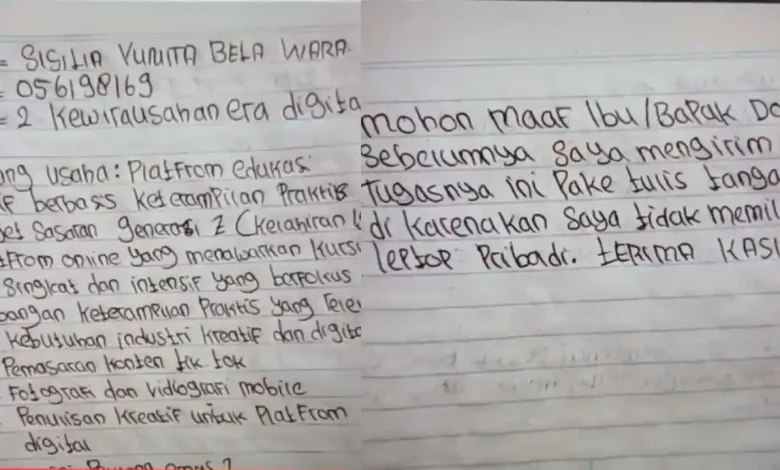 = SISILIA YUNITA BELA WARA
= 056198169
= 2 Kewirausahan era digita
ang usaha: Platfrom edukasi
if berbass keterampilan Praktis
get Sasaran generasi Z (kelahiran
tfrom online yang menawarkan kursu
Singkat dan intensif yang berfokus
bangan keterampilan Praktis yang rele
kebutuhan industri kreatif dan digita
Pemasaran konten tik tok
Fotografi dan vidiografi mobile
Penulisan kreatif untuk Platfrom
digital
mohon maaf Ibu/Bapak Do
Sebelumnya saya mengirim
tugasnya ini Pake tulis tanga
di karenakan saya tidak memil
leptop Pribadi. TERIMA KASI